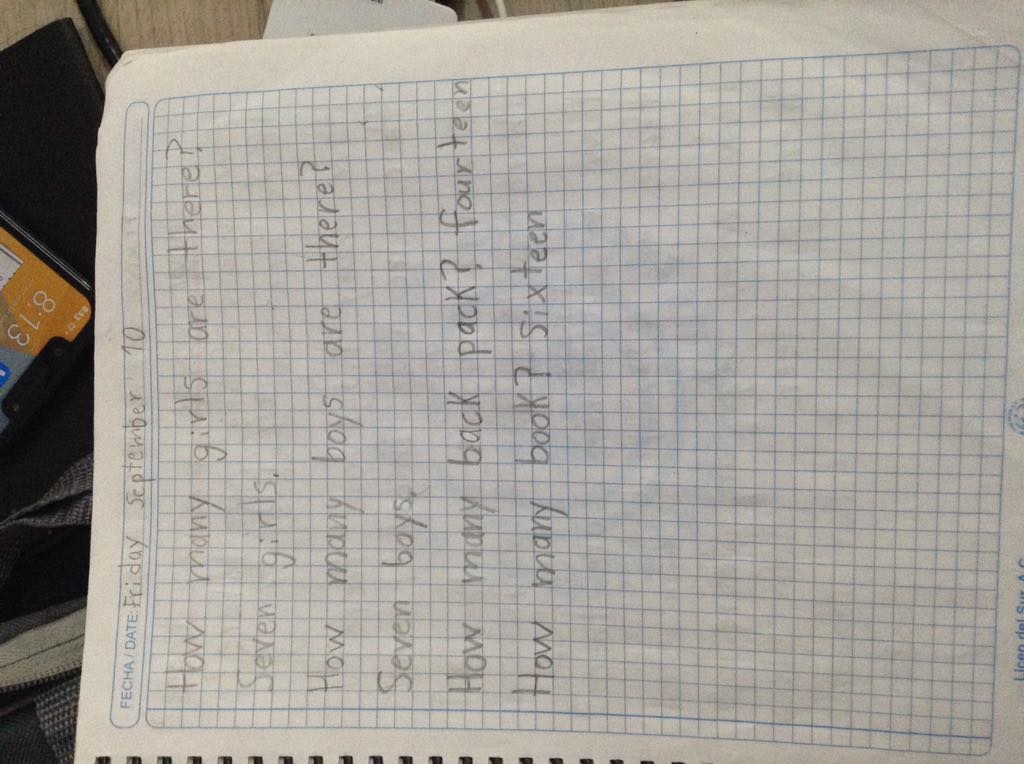 FECHA / DATE: Friday September 10
How many girls are there?
Seven girls.
How many boys are there?
Seven boys.
How many back pack? fourteen
How many book? Sixteen
Liceo del Sur A.C.
8:13